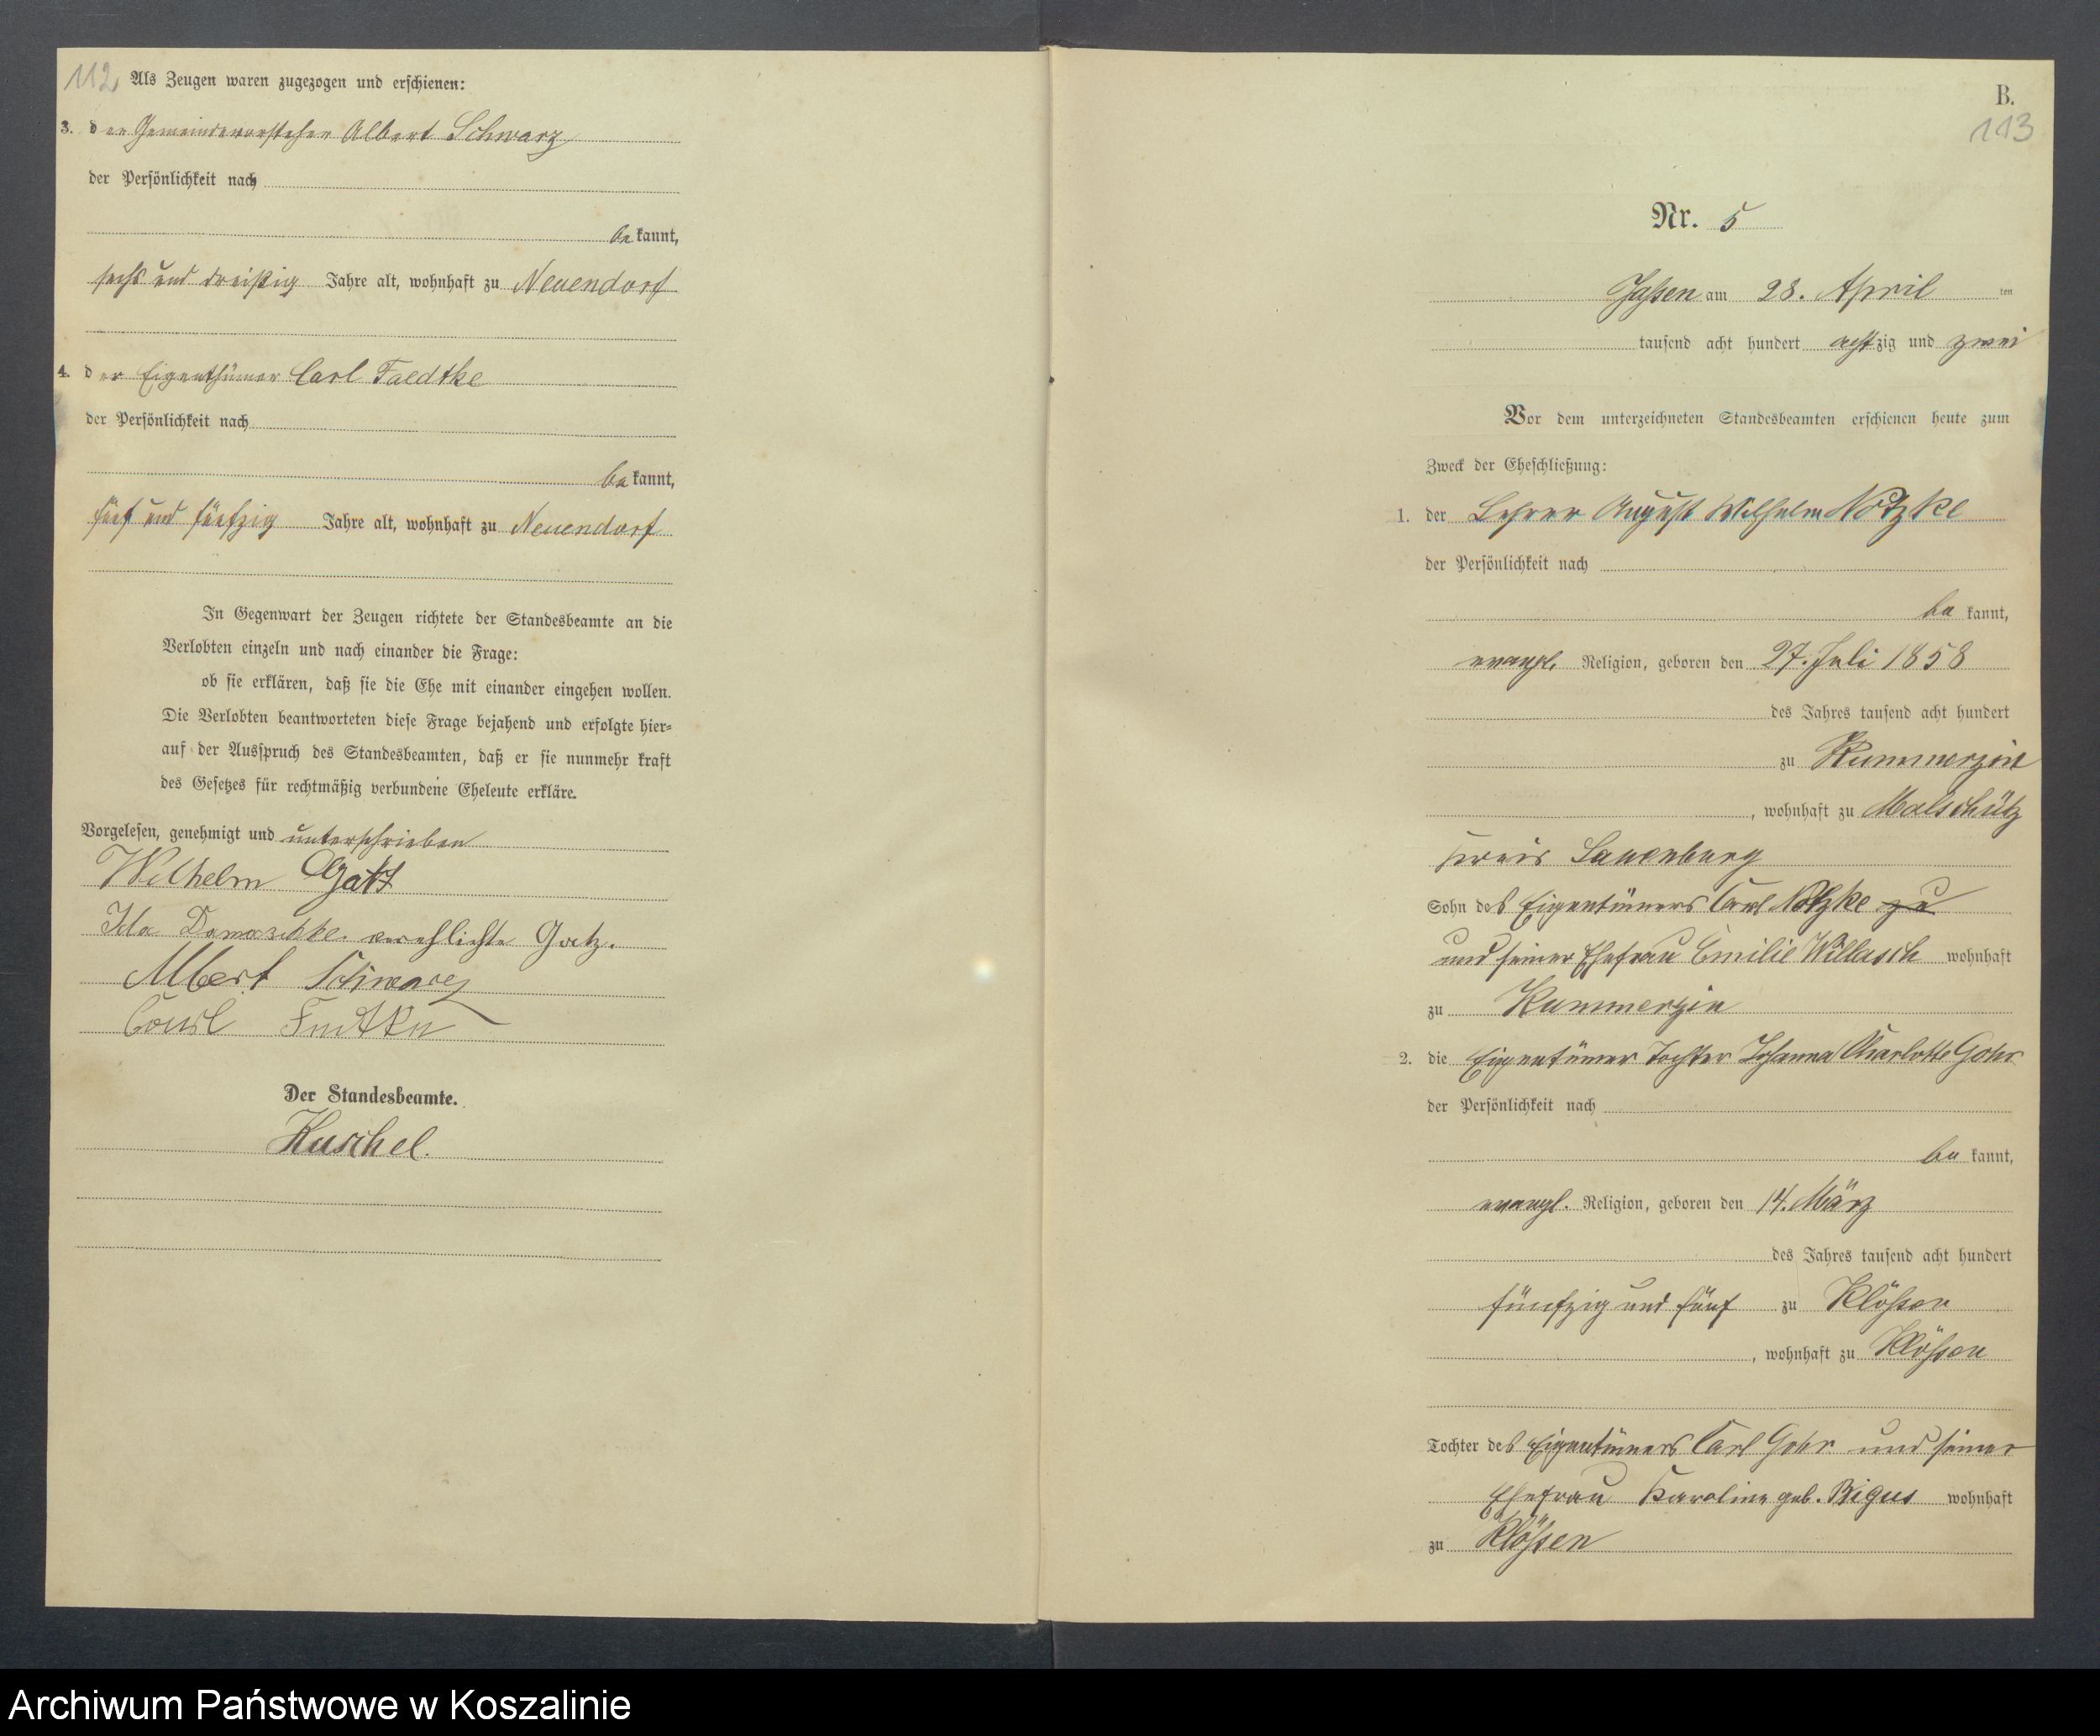 112
Als Zeugen waren zugezogen und erschienen:
3. der Gemeindevorsteher Albert Schwarz
der Persönlichkeit nach
bekannt,
sechs und dreißig Jahre alt, wohnhaft zu Neuendorf
4. der Eigenthümer Carl Faedtke
der Persönlichkeit nach
bekannt,
fünf und fünfzig Jahre alt, wohnhaft zu Neuendorf
In Gegenwart der Zeugen richtete der Standesbeamte an die
Verlobten einzeln und nach einander die Frage:
ob sie erklären, daß sie die Ehe mit einander eingehen wollen.
Die Verlobten beantworteten diese Frage bejahend und erfolgte hier=
auf der Ausspruch des Standesbeamten, daß er sie nunmehr kraft
des Gesetzes für rechtmäßig verbundene Eheleute erkläre.
Vorgelesen, genehmigt und unterschrieben
Wilhelm Gatz
Ida Damaschke verehlichte Gatz.
Albert Schwarz
Carl
Der Standesbeamte.
Kuschel.
B.
113
Nr. 5
Jassen am 28. April ten
tausend acht hundert achtzig und zwei
Vor dem unterzeichneten Standesbeamten erschienen heute zum
Zweck der Eheschließung:
1. der Lehrer August Wilhelm Nötzke
der Persönlichkeit nach
bekannt,
evangl. Religion, geboren den 27. Juli 1858
des Jahres tausend acht hundert
zu Kummerzin
, wohnhaft zu Malschütz
Kreis Lauenburg
Sohn des Eigentümers Carl Nötzke zu
und seiner Ehefrau Emilie Willasch wohnhaft
zu Kummerzin
2. die Eigentümer Tochter Johanna Charlotte Gohr
der Persönlichkeit nach
bekannt,
evangl. Religion, geboren den 14. März
des Jahres tausend acht hundert
fünfzig und fünf zu Klößen
, wohnhaft zu Klößen
Tochter des Eigentümers Carl Gohr und seiner
Ehefrau Karoline geb. Bigus wohnhaft
zu Klößen
Archiwum Państwowe w Koszalinie